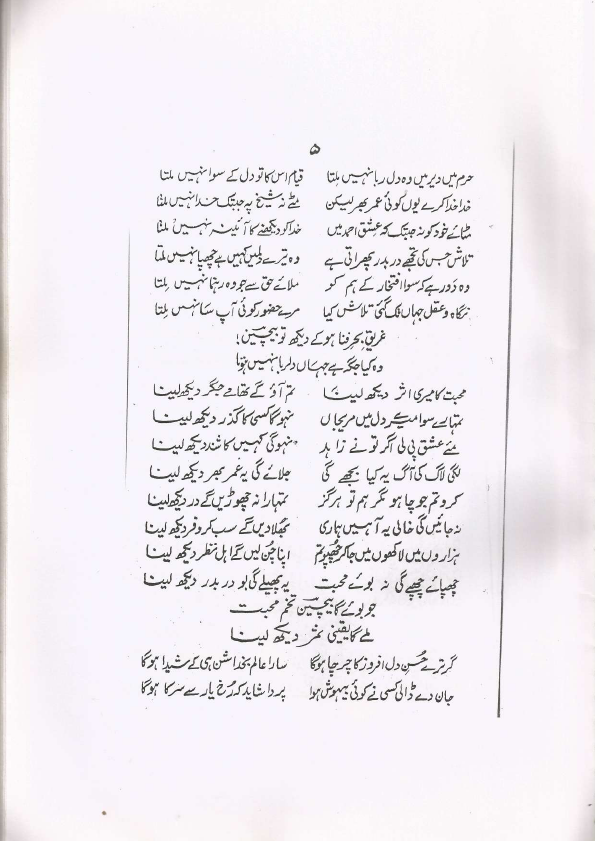 ۵
حرم میں دیر میں وہ دل ربا نہیں ملتا قیام اس کا تو دل کے سوا نہیں ملتا
خدا خدا کرے یوں کوئی عمر بھر لیکن ملے نہ شیخ یہ جبتک خدا نہیں ملتا
مٹائے خود کو نہ جبتک کہ عشق احمد میں خدا کو دیکھنے کا آئینہ نہیں ملتا
تلاش جس کی تجھے در بدر پھراتی ہے وہ تیرے دلمیں کہیں ہے چھپا نہیں ملتا
وہ دَور ہے کہ سوا افتخار کے ہم کو ملائے حق سے جو وہ رہنما نہیں ملتا
نگاہ و عقل جہاں تک گئی تلاش کیا مرے حضور کوئی آپ سا نہیں ملتا
غریقِ بحرِ فنا ہو کے دیکھ تو بیچین!
وہ کیا جگہ ہے جہاں دلربا نہیں ہوتا
محبت کا میری اثر دیکھ لینا تم آؤ گے تھامے جگر دیکھ لینا
تمہارے سوا میرے دل میں مریجاں نہ ہو گا کسی کا گذر دیکھ لینا
مئے عشق پی لی اگر تو نے زاہد نہ ہو گی کہیں کا نڈر دیکھ لینا
لگی لاگ کی آگ یہ کیا بجھے گی جلائے گی یہ عمر بھر دیکھ لینا
کرو تم جو چاہو مگر ہم تو ہرگز تمہارا نہ چھوڑیں گے در دیکھ لینا
نہ جائیں گی خالی یہ آہیں ہماری بھلا دیں گے سب کروفر دیکھ لینا
ہزاروں میں لاکھوں میں جا کر چھپو تم اپنا چُن لیں گے اہل نظر دیکھ لینا
چھپائے چھپے گی نہ بوئے محبت یہ پھیلے گی بو در بدر دیکھ لینا
جو بوئے گا بیچین تخم محبت
ملے گا یقینی ثمر دیکھ لینا
گر ترے حُسنِ دل افروز کا چرچا ہو گا سارا عالم بخدا سُن ہی کے شیدا ہو گا
جان دے ڈالی کسی نے کوئی بیہوش ہوا پردا شاید کہ رُخِ یار سے سرکا ہو گا